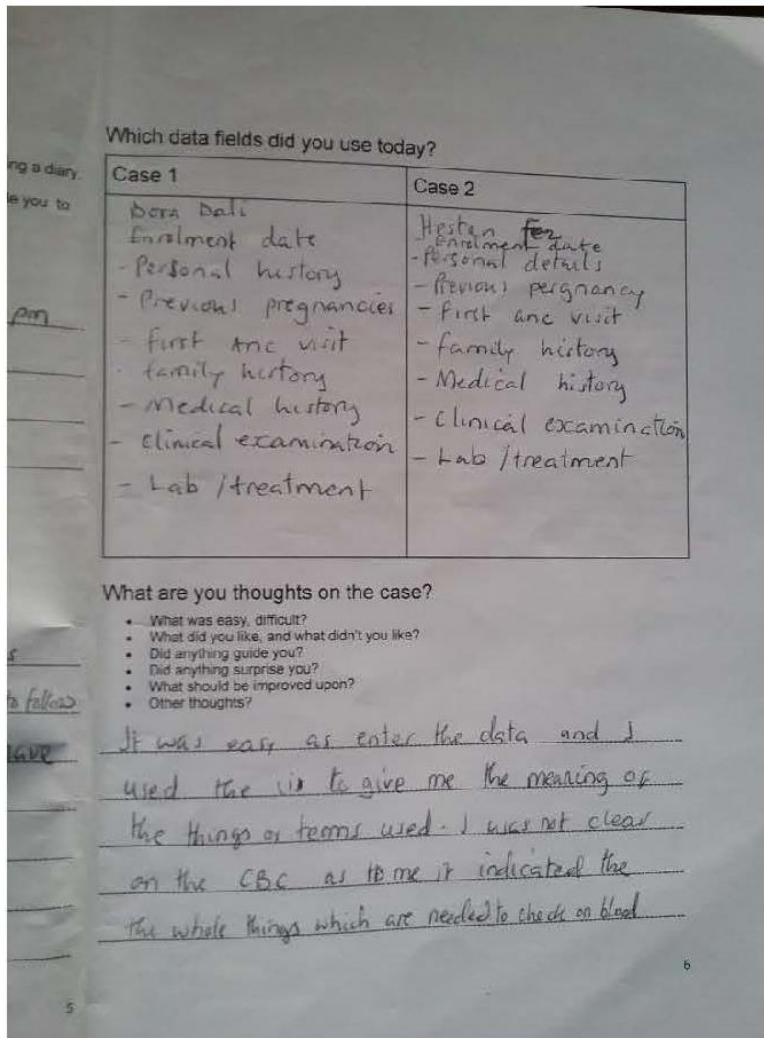 ng a diary.
le you to
pm
s
to follow
have
5
Which data fields did you use today?
Case 1
Dora Dali
Enrolment date
- Personal history
- Previous pregnancies
- first Anc visit
- family history
- Medical history
- Clinical examination
- Lab / treatment
Case 2
Hestan
- Enrolment date
- Personal details
- Previous pergnancy
- First anc visit
- family history
- Medical history
- Clinical examination
- Lab / treatment
What are you thoughts on the case?
• What was easy, difficult?
• What did you like, and what didn't you like?
• Did anything guide you?
• Did anything surprise you?
• What should be improved upon?
• Other thoughts?
It was easy as enter the data and I
used the to give me the meaning of
the things or terms used. I was not clear
on the CBC as to me it indicated the
the whole things which are needed to check on blood
6